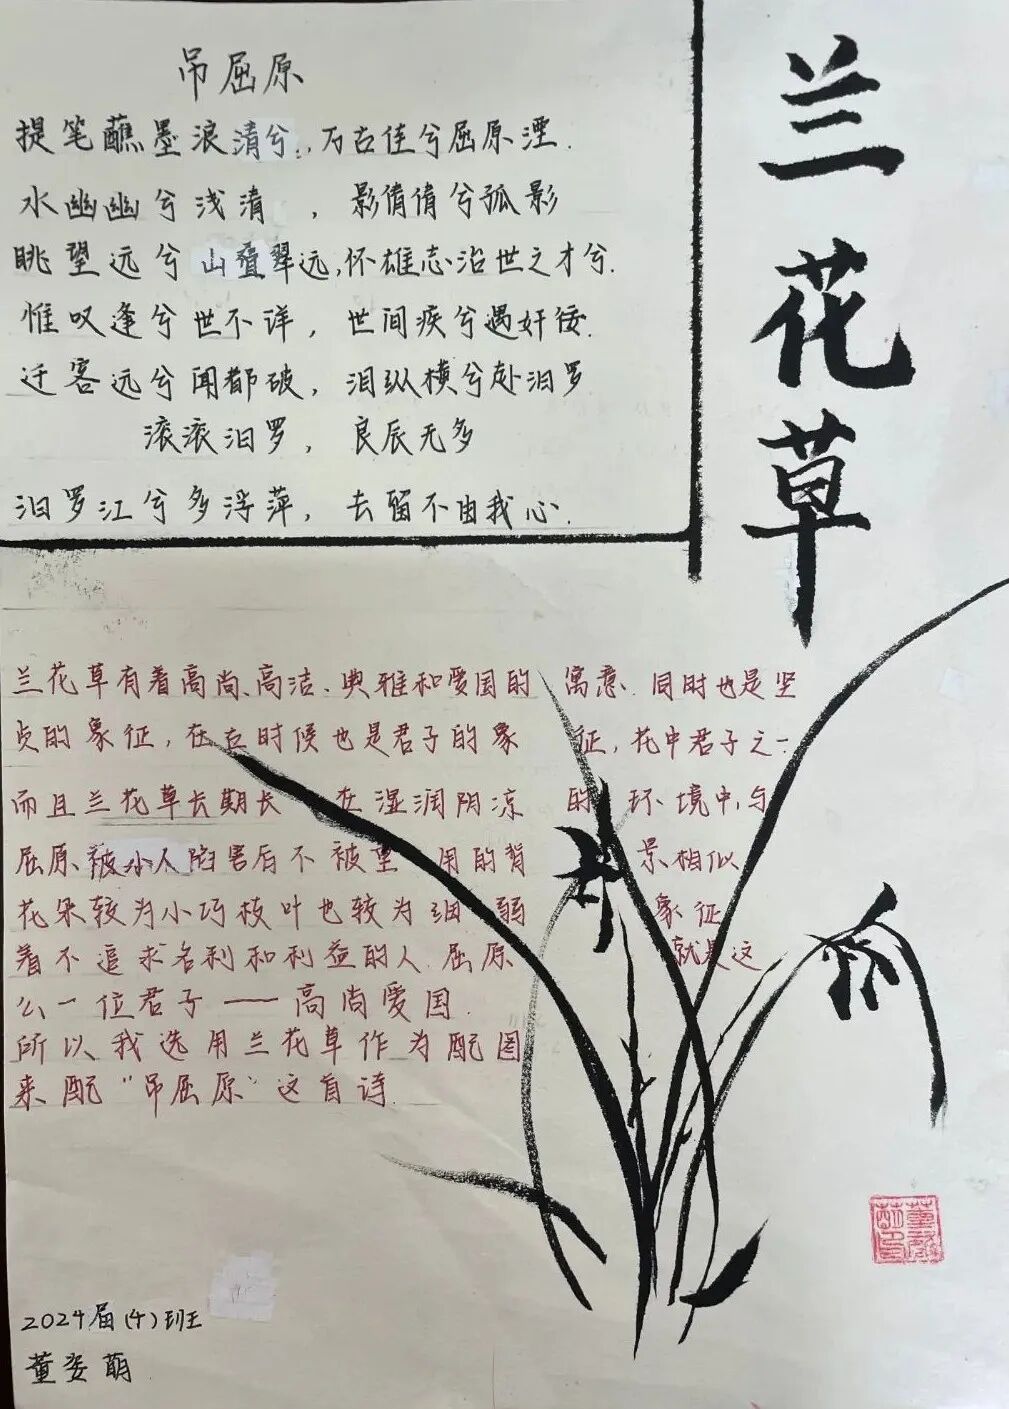 兰花草
吊屈原
提笔蘸墨浪清兮,万古佳兮屈原湮.
水幽幽兮浅清,影倩倩兮孤影
眺望远兮山叠翠远,怀雄志治世之才兮.
惟叹逢兮世不详,世间疾兮遇奸佞.
迁客远兮闻都破,泪纵横兮赴汨罗
滚滚汨罗,良辰无多
汨罗江兮多浮萍,去留不由我心.
兰花草有着高尚、高洁、典雅和爱国的寓意.同时也是坚
贞的象征,在古时候也是君子的象征,花中君子之一.
而且兰花草长期长在湿润阴凉的环境中,与
屈原被小人陷害后不被重用的背景相似
花朵较为小巧枝叶也较为细弱象征
着不追求名利和利益的人.屈原就是这
么一位君子——高尚爱国.
所以我选用兰花草作为配图
来配"吊屈原"这首诗.
2024届(4)班
董姿萌